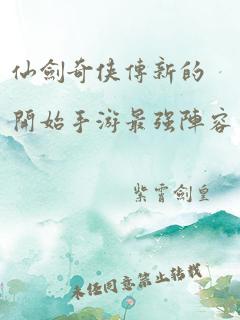 仙劍奇俠傳新的
開始手游最强陣容
紫霄劍皇
未经同意禁止转载